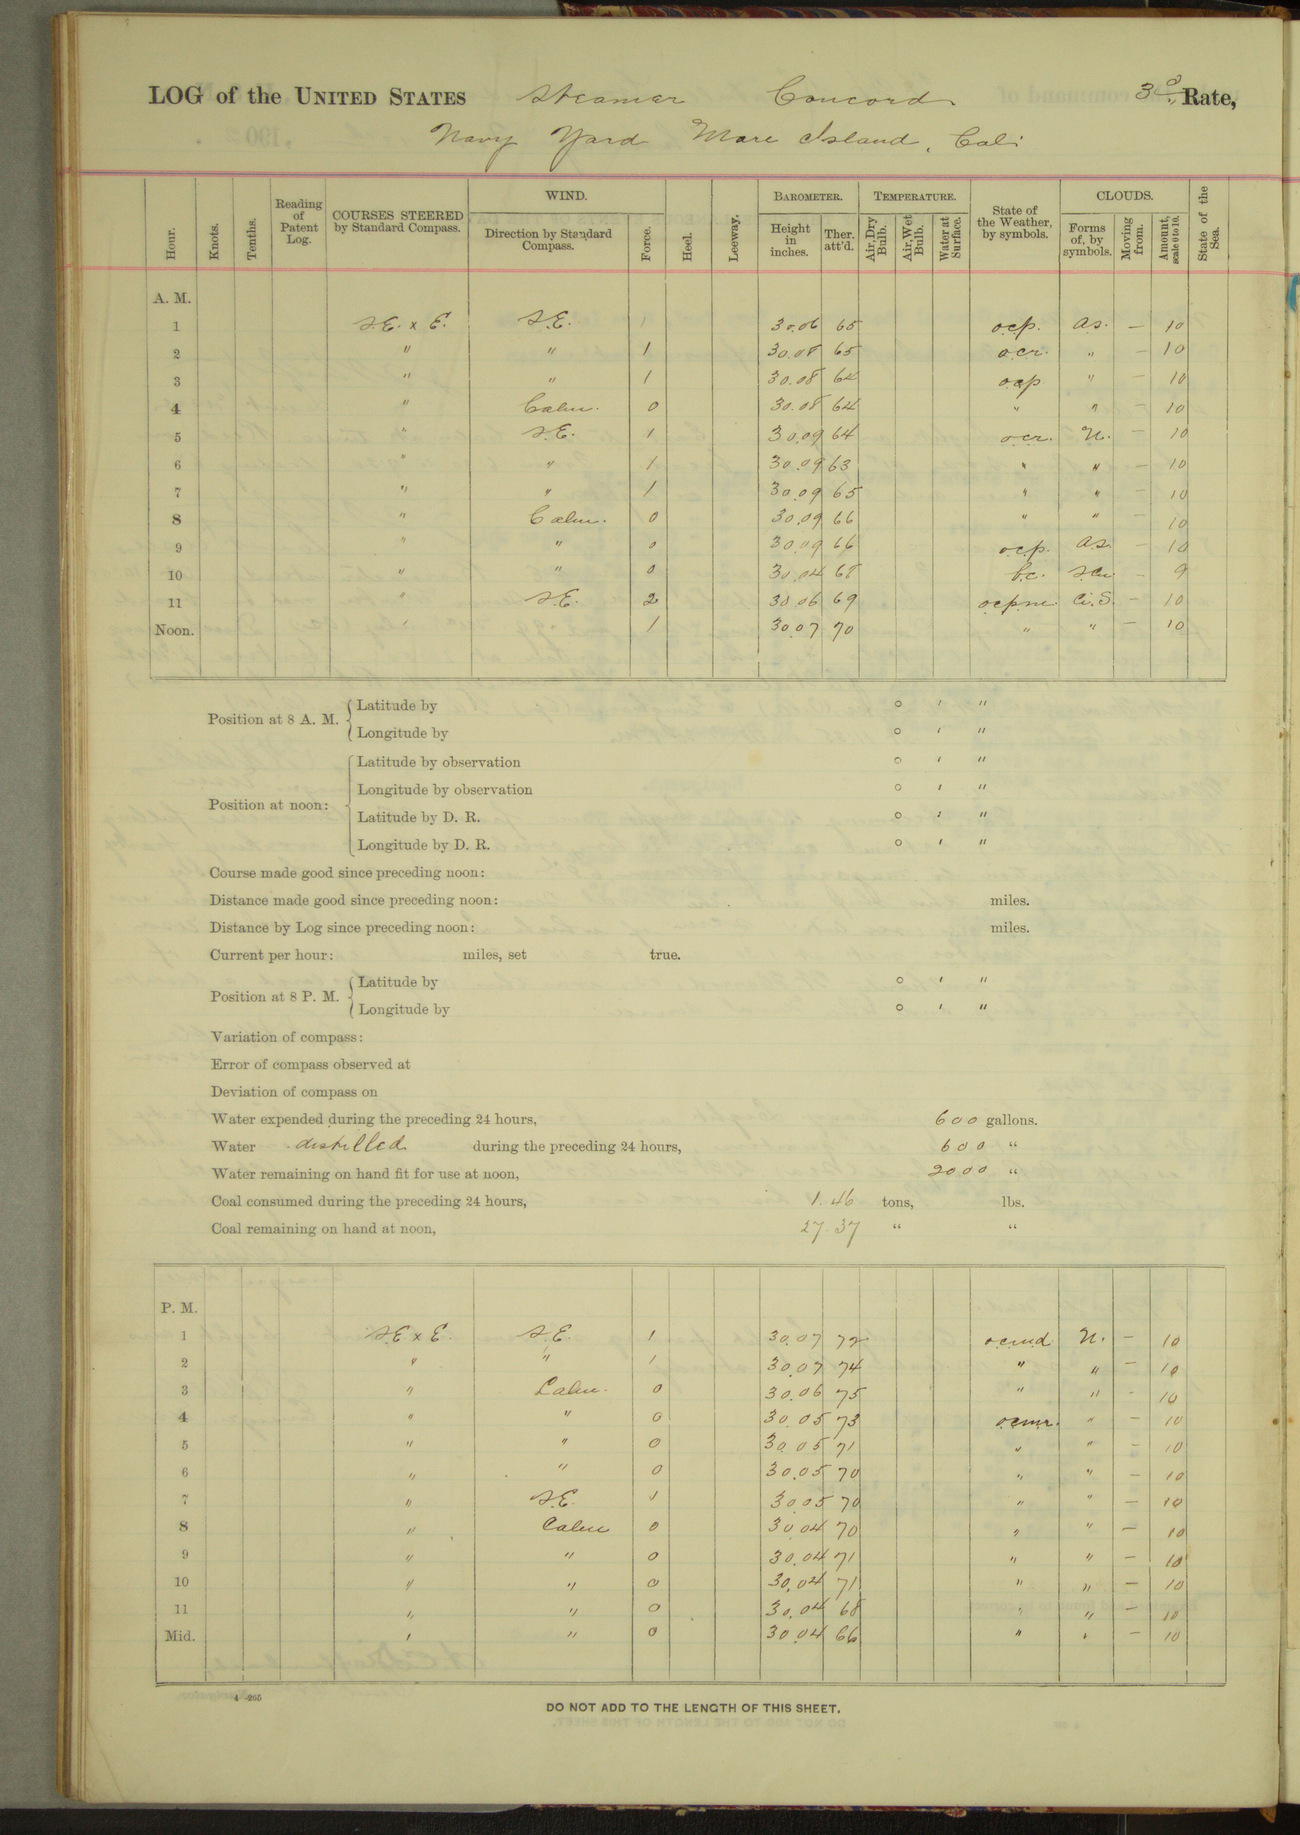 LOG of the UNITED STATES Steamer Concord 3d Rate,
Navy Yard Mare Island, Cali
Hour. Knots. Tenths. Reading of Patent Log. COURSES STEERED by Standard Compass. WIND. Direction by Standard Compass. Force. Heel. Leeway. BAROMETER. Height in inches. Ther. att'd. TEMPERATURE. Air, Dry Bulb. Air, Wet Bulb. Water at Surface. State of the Weather, by symbols. CLOUDS. Forms of, by symbols. Moving from. Amount, scale 0 to 10. State of the Sea.
A. M.
1 S.E. x E. S.E. 1 30.06 65 ocp. as. — 10
2 " " 1 30.08 65 ocr. " — 10
3 " " 1 30.08 64 ocp " — 10
4 " Calm. 0 30.08 64 " " — 10
5 " S.E. 1 30.09 64 ocr. N. — 10
6 " " 1 30.09 63 " " — 10
7 " " 1 30.09 65 " " — 10
8 " Calm. 0 30.09 66 " " — 10
9 " " 0 30.09 66 ocp. as. — 10
10 " " 0 30.04 68 bc. scu. — 9
11 " S.E. 2 30.06 69 ocpm. Ci.S. — 10
Noon. " 1 30.07 70 " " — 10
Position at 8 A. M. Latitude by ° ' "
Longitude by ° ' "
Position at noon: Latitude by observation ° ' "
Longitude by observation ° ' "
Latitude by D. R. ° ' "
Longitude by D. R. ° ' "
Course made good since preceding noon:
Distance made good since preceding noon: miles.
Distance by Log since preceding noon: miles.
Current per hour: miles, set true.
Position at 8 P. M. Latitude by ° ' "
Longitude by ° ' "
Variation of compass:
Error of compass observed at
Deviation of compass on
Water expended during the preceding 24 hours, 600 gallons.
Water distilled during the preceding 24 hours, 600 "
Water remaining on hand fit for use at noon, 2000 "
Coal consumed during the preceding 24 hours, 1.46 tons, lbs.
Coal remaining on hand at noon, 27.37 " "
P. M.
1 S.E x E. S.E. 1 30.07 72 ocmd N. — 10
2 " " 1 30.07 74 " " — 10
3 " Calm. 0 30.06 75 " " - 10
4 " " 0 30.05 73 ocmr. " — 10
5 " " 0 30.05 71 " " — 10
6 " " 0 30.05 70 " " — 10
7 " S.E. 1 30.05 70 " " — 10
8 " Calm 0 30.04 70 " " — 10
9 " " 0 30.04 71 " " — 10
10 " " 0 30.04 71 " " — 10
11 " " 0 30.04 68 " " — 10
Mid. " " 0 30.04 66 " " — 10
4—265
DO NOT ADD TO THE LENGTH OF THIS SHEET.